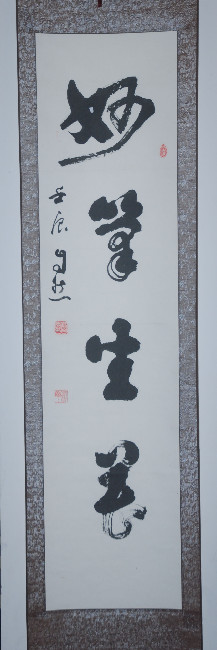 妙筆生花
壬辰